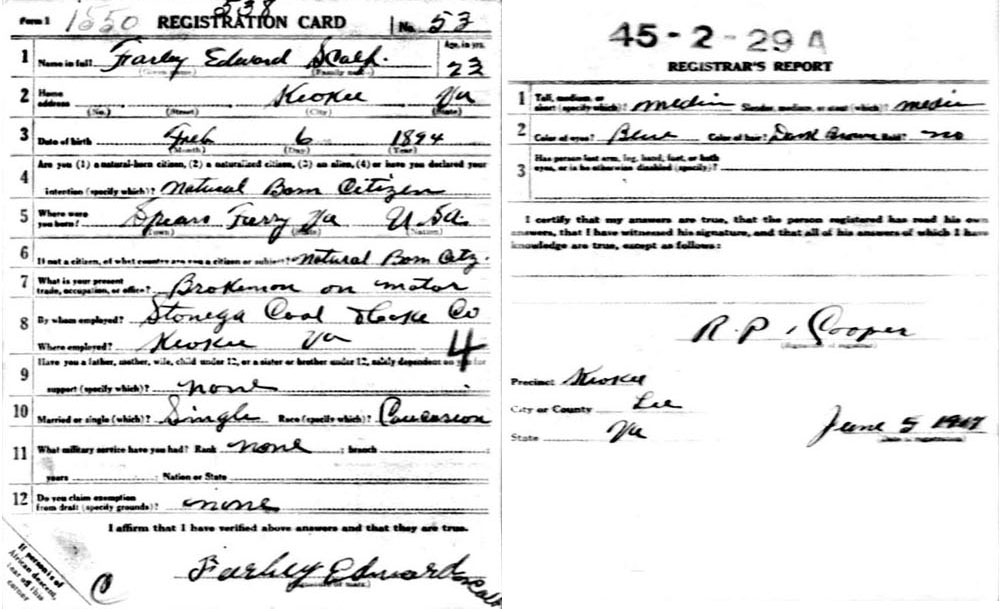 538
Form 1 1550 REGISTRATION CARD No. 53
1 Name in full Farley Edward Scalf. Age, in yrs. 23
(Given name) (Family name)
2 Home address Keokee Va
(No.) (Street) (City) (State)
3 Date of birth Feb 6 1894
(Month) (Day) (Year)
Are you (1) a natural-born citizen, (2) a naturalized citizen, (3) an alien, (4) or have you declared your
4 intention (specify which)? Natural Born Citizen
5 Where were you born? Spears Farry Va U.S.A.
(Town) (State) (Nation)
6 If not a citizen, of what country are you a citizen or subject? Natural Born Citz.
7 What is your present trade, occupation, or office? Brakeman on motor
8 By whom employed? Stonega Coal & Coke Co
Where employed? Keokee Va 4
Have you a father, mother, wife, child under 12, or a sister or brother under 12, solely dependent on you for
9 support (specify which)? none
10 Married or single (which)? Single Race (specify which)? Caucasion
11 What military service have you had? Rank none ; branch
years ; Nation or State
12 Do you claim exemption from draft (specify grounds)? none
I affirm that I have verified above answers and that they are true.
Farley Edward Scalf
(Signature or mark)
If person is of
African descent,
tear off this
corner
45-2-29 A
REGISTRAR'S REPORT
1 Tall, medium, or short (specify which)? medin Slender, medium, or stout (which)? medin
2 Color of eyes? Blue Color of hair? Dark Brown Bald? no
3 Has person lost arm, leg, hand, foot, or both eyes, or is he otherwise disabled (specify)?
I certify that my answers are true, that the person registered has read his own
answers, that I have witnessed his signature, and that all of his answers of which I have
knowledge are true, except as follows:
R. P. Cooper
(Signature of registrar)
Precinct Keokee
City or County Lee
State Va
June 5 1917
(Date of registration)